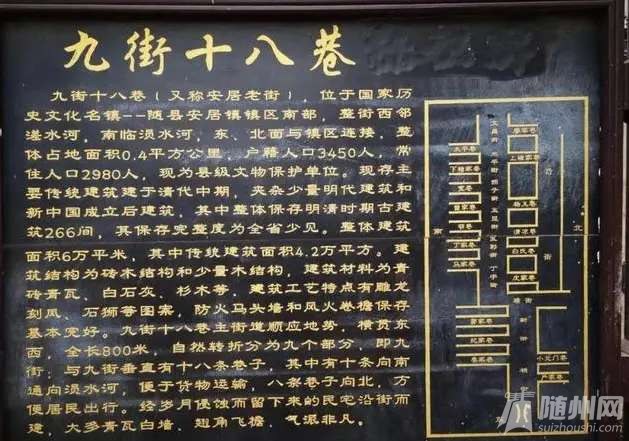 九街十八巷
九街十八巷（又称安居老街），位于国家历
史文化名镇--随县安居镇镇区南部，整街西邻
溠水河，南临涢水河，东、北面与镇区连接，整
体占地面积0.4平方公里，户籍人口3450人，常
住人口2980人，现为县级文物保护单位。现存主
要传统建筑建于清代中期，夹杂少量明代建筑和
新中国成立后建筑，其中整体保存明清时期古建
筑266间，其保存完整度为全省少见。整体建筑
面积6万平米，其中传统建筑面积4.2万平方。建
筑结构为砖木结构和少量木结构，建筑材料为青
砖青瓦、白石灰、杉木等，建筑工艺特点有雕龙
刻凤、石狮等图案，防火马头墙和风火卷檐保存
基本完好。九街十八巷主街道顺应地势，横贯东
西，全长800米，自然转折分为九个部分，即九
街；与九街垂直有十八条巷子，其中有十条向南
通向涢水河，便于货物运输，八条巷子向北，方
便居民出行。经岁月侵蚀而留下来的民宅沿街而
建，大多青瓦白墙、翘角飞檐，气派非凡。
太平巷
丁家巷
马家巷
南
北
杨五巷
清凉巷
白氏巷
皮家巷
街
塘街
小北门巷
随州网
suizhoushi.com